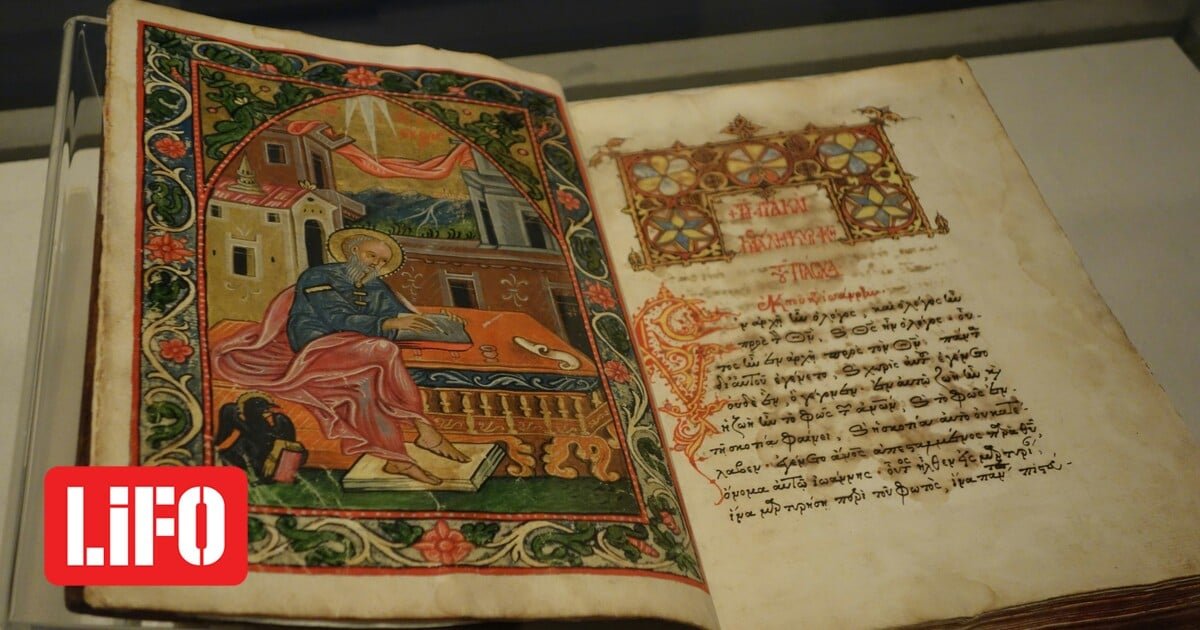 ΠΑΣΧΑ
ν ἀρχῇ ἦν ὁ λόγος, καὶ ὁ λόγος ἦν
πρὸς τὸν Θν, καὶ Θς ἦν ὁ λόγος. οὗ
τος ἦν ἐν ἀρχῇ πρὸς τὸν Θν. πάντ
δι' αὐτοῦ ἐγένετο, καὶ χωρὶς αὐτοῦ ἐγένετο
οὐδὲ ἕν, ὃ γέγονεν. ἐν αὐτῷ ζωὴ ἦν, καὶ
ἡ ζωὴ ἦν τὸ φῶς τῶν ἀνων, καὶ τὸ φῶς ἐν
τῇ σκοτίᾳ φαίνει, καὶ ἡ σκοτία αὐτὸ οὐ κατέ
λαβεν. ἐγένετο ἄνος ἀπεσταλμένος παρὰ Θυ,
ὄνομα αὐτῷ ἰωάννης. οὗτος ἦλθεν εἰς μαρτυρί
ἵνα μαρτυρήσῃ περὶ τοῦ φωτὸς, ἵνα πάντ πιστεύ
LiFO